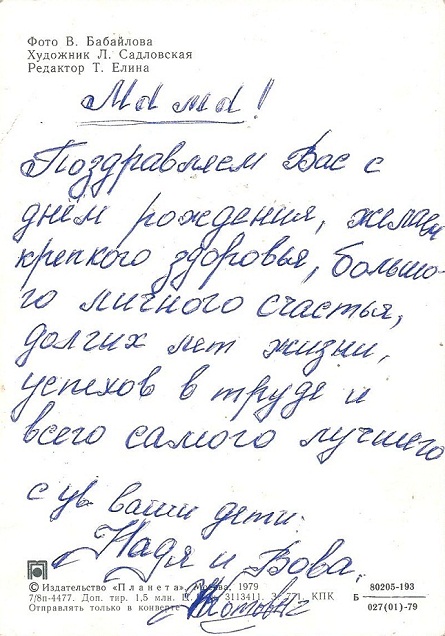 Фото В. Бабайлова
Художник Л. Садловская
Редактор Т. Елина
Мама!
Поздравляем Вас с
днём рождения, желаем
крепкого здоровья, большо-
го личного счастья,
долгих лет жизни,
успехов в труде и
всего самого лучшего
с ув ваши дети:
Надя и Вова.
© Издательство «Планета», Москва, 1979
7/8п-4477. Доп. тир. 1,5 млн. З. 771. КПК
Отправлять только в конверте
80205-193
Б
027(01)-79